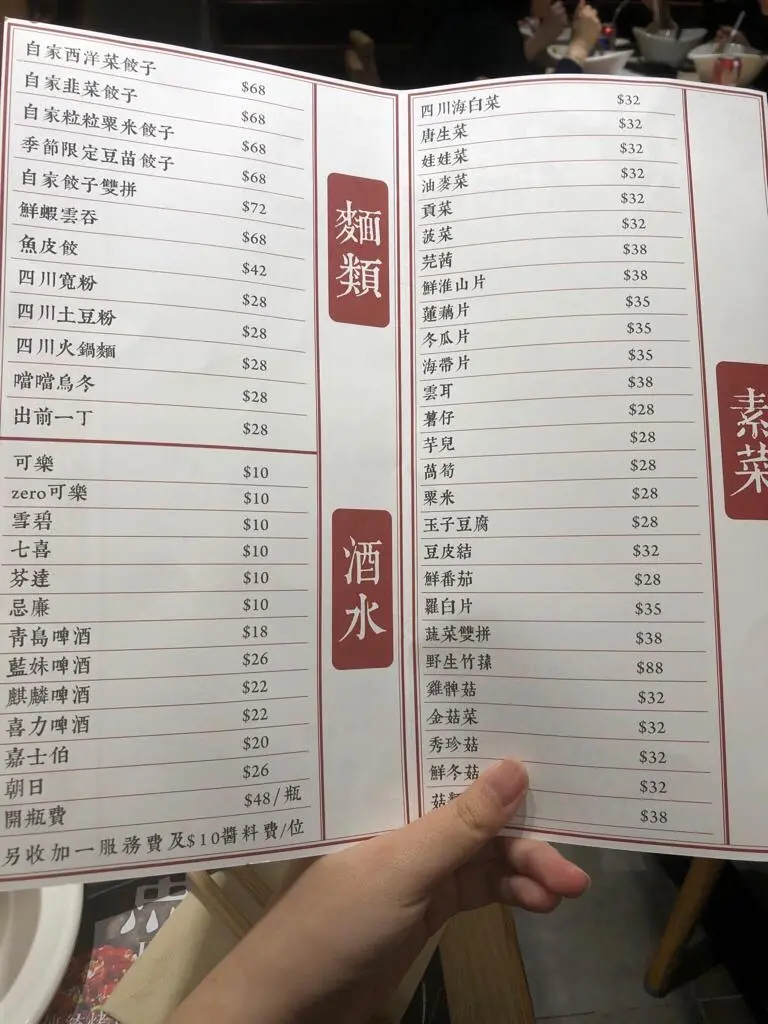 自家西洋菜餃子 $68
自家韭菜餃子 $68
自家粒粒粟米餃子 $68
季節限定豆苗餃子 $68
自家餃子雙拼 $72
鮮蝦雲吞 $68
魚皮餃 $42
四川寬粉 $28
四川土豆粉 $28
四川火鍋麵 $28
噹噹烏冬 $28
出前一丁 $28
麵類
可樂 $10
zero可樂 $10
雪碧 $10
七喜 $10
芬達 $10
忌廉 $10
青島啤酒 $18
藍妹啤酒 $26
麒麟啤酒 $22
喜力啤酒 $22
嘉士伯 $20
朝日 $26
開瓶費 $48/瓶
另收加一服務費及$10醬料費/位
酒水
四川海白菜 $32
唐生菜 $32
娃娃菜 $32
油麥菜 $32
貢菜 $32
菠菜 $32
芫茜 $38
鮮淮山片 $38
蓮藕片 $35
冬瓜片 $35
海帶片 $35
雲耳 $38
薯仔 $28
芋兒 $28
萵筍 $28
粟米 $28
玉子豆腐 $28
豆皮結 $32
鮮番茄 $28
羅白片 $35
蔬菜雙拼 $38
野生竹蓀 $88
雞髀菇 $32
金菇菜 $32
秀珍菇 $32
鮮冬菇 $32
$38
素菜